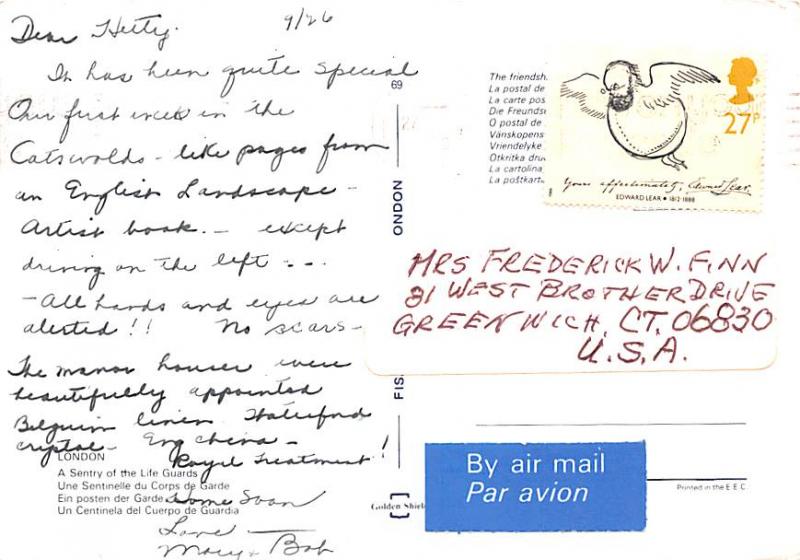 9/26
Dear Hetty.
It has been quite special
Our first week in the
Cotswolds - like pages from
an English Landscape -
Artist book. - except
driving on the left - - -
- All hands and eyes are
alerted!! No scars -
The manor houses were
beautifully appointed
Belguim linen Waterford
crystal - Eng china -
Royal Treatment!
Home Soon
Love -
Mary + Bob
LONDON
A Sentry of the Life Guards
Une Sentinelle du Corps de Garde
Ein posten der Garde
Un Centinela del Cuerpo de Guardia
69
ONDON
FIS
Golden Shiel
The friendsh
La postal de
La carte pos
Die Freundsc
O postal de
Vänskopens
Vriendelyke
Otkritka dru
La cartolina
La poštkart
27P
Yours affectionately, Edward Lear.
EDWARD LEAR • 1812-1888
MRS FREDERICK W. FINN
21 WEST BROTHER DRIVE
GREENWICH, CT. 06830
U.S.A.
By air mail
Par avion
Printed in the E.E.C.